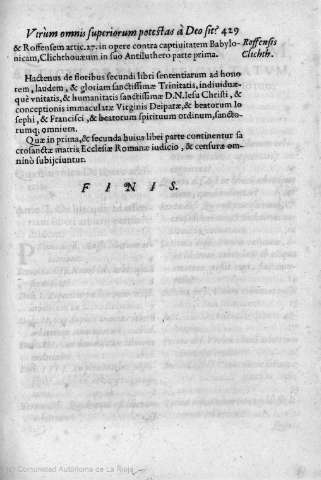 Vtrùm omnis superiorum potestas à Deo sit? 429
& Roffensem artic. 27. in opere contra captiuitatem Babylo- Roffensis
nicam, Clichthouæum in suo Antiluthero parte prima. Clichth.
Hactenus de floribus secundi libri sententiarum ad hono
rem, laudem, & gloriam sanctissimæ Trinitatis, indiuiduæ-
què vnitatis, & humanitatis sanctissimæ D.N. Iesu Christi, &
conceptionis immaculatæ Virginis Deiparæ, & beatorum Io
sephi, & Francisci, & beatorum spirituum ordinum, sancto-
rumq; omnium.
Quæ in prima, & secunda huius libri parte continentur sa
crosanctæ matris Ecclesiæ Romanæ iudicio, & censuræ om-
ninò subijciuntur.
F I N I S.
(c) Comunidad Autónoma de La Rioja